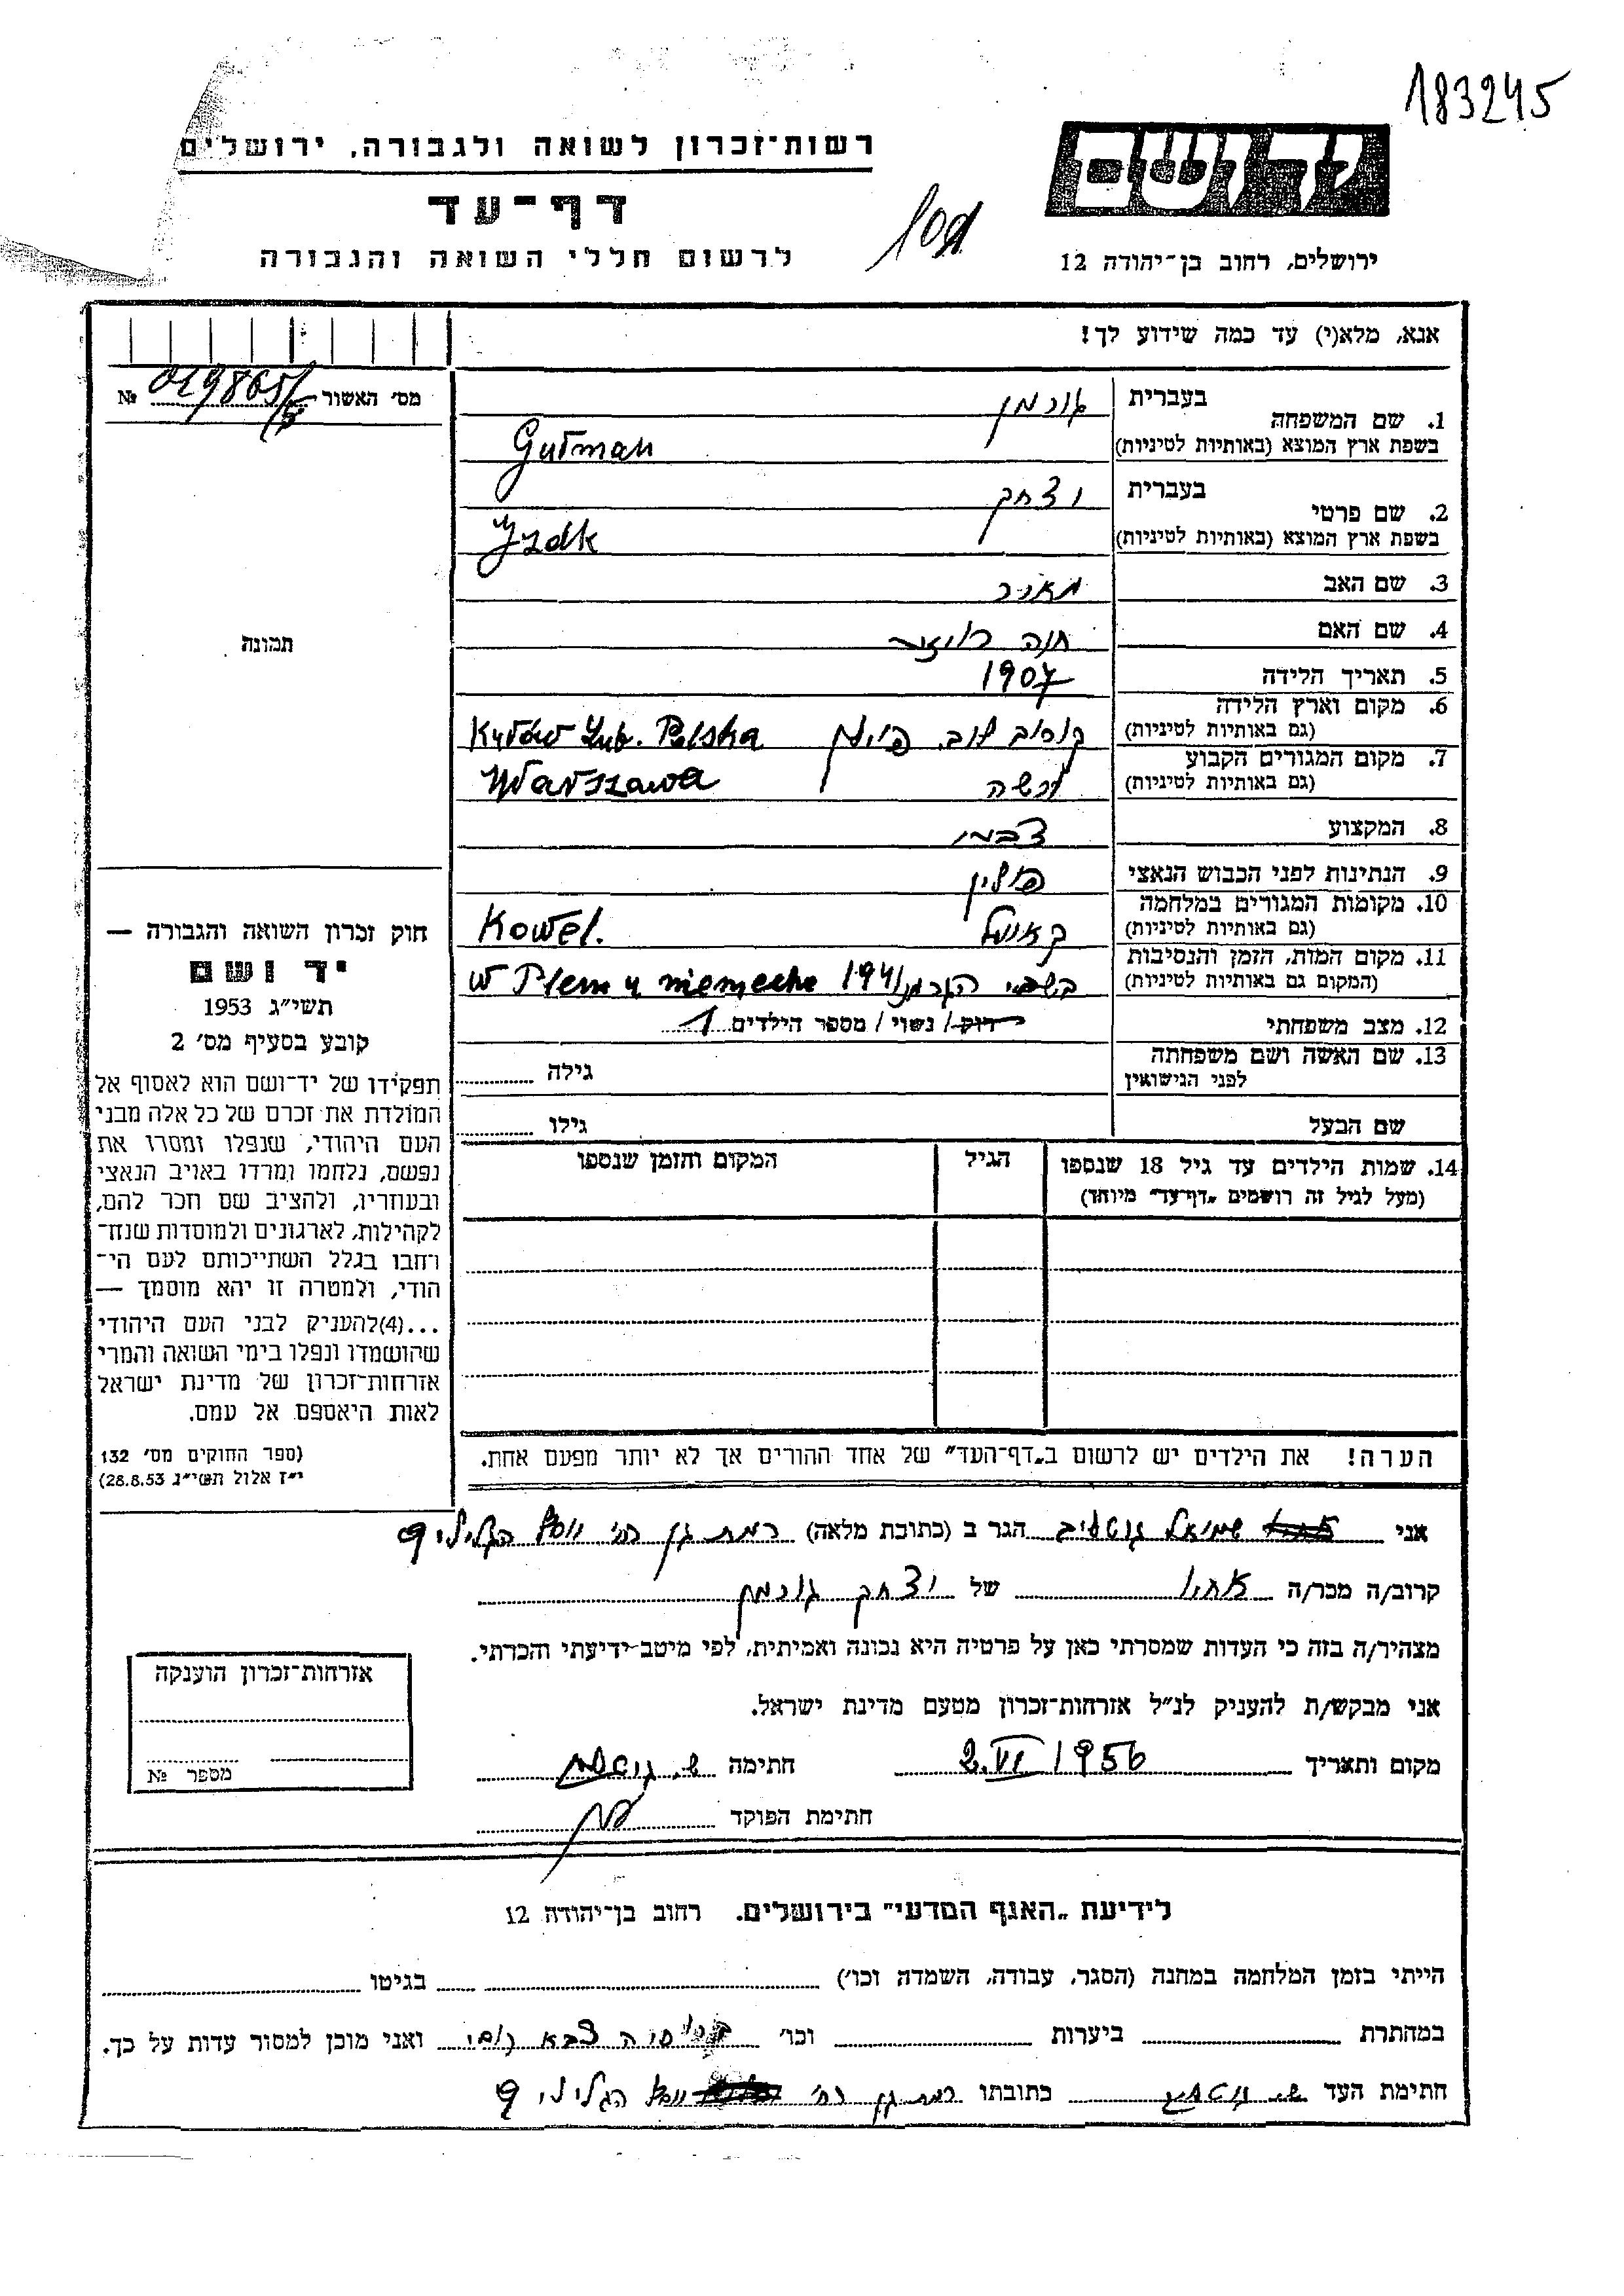 183245
רשות־זכרון לשואה ולגבורה, ירושלים
יד ושם
דף־עד
לרשום חללי השואה והגבורה
ירושלים, רחוב בן־יהודה 12
אנא, מלא(י) עד כמה שידוע לך!
מס׳ האשור № 019865/5
1. שם המשפחה בעברית גוטמן
בשפת ארץ המוצא (באותיות לטיניות) Gutman
2. שם פרטי בעברית יצחק
בשפת ארץ המוצא (באותיות לטיניות) Izak
3. שם האב מאיר
4. שם האם חנה
5. תאריך הלידה 1907
6. מקום וארץ הלידה
(גם באותיות לטיניות) קורוב לוב. פולין Kurów Lub. Polska
7. מקום המגורים הקבוע
(גם באותיות לטיניות) ורשה Warszawa
8. המקצוע
9. הנתינות לפני הכבוש הנאצי פולין
10. מקומות המגורים במלחמה
(גם באותיות לטיניות) קאוועל Kowel.
11. מקום המות, הזמן והנסיבות
(המקום גם באותיות לטיניות) בשבי הגרמני 1941 w Plenu niemecke
12. מצב משפחתי רוק/ נשוי / מספר הילדים 1
13. שם האשה ושם משפחתה
לפני הנישואין גילה
שם הבעל גילו
14. שמות הילדים עד גיל 18 שנספו
(מעל לגיל זה רושמים „דף־עד” מיוחד)
הגיל
המקום והזמן שנספו
הערה! את הילדים יש לרשום ב„דף־העד” של אחד ההורים אך לא יותר מפעם אחת.
תמונה
חוק זכרון השואה והגבורה —
יד ושם
תשי״ג 1953
קובע בסעיף מס׳ 2
תפקידו של יד־ושם הוא לאסוף אל
המולדת את זכרם של כל אלה מבני
העם היהודי, שנפלו ומסרו את
נפשם, נלחמו ומרדו באויב הנאצי
ובעוזריו, ולהציב שם וזכר להם,
לקהילות, לארגונים ולמוסדות שנח־
רבו בגלל השתייכותם לעם הי־
הודי, ולמטרה זו יהא מוסמך —
...(4)להעניק לבני העם היהודי
שהושמדו ונפלו בימי השואה והמרי
אזרחות־זכרון של מדינת ישראל
לאות היאספם אל עמם.
(ספר החוקים מס׳ 132
י״ז אלול תשי״ג 28.8.53)
אני שמואל הגר ב (כתובת מלאה) רמת גן רח׳ יוסף הגלילי 9
קרוב/ה מכר/ה אחיו של יצחק גוטמן
מצהיר/ה בזה כי העדות שמסרתי כאן על פרטיה היא נכונה ואמיתית, לפי מיטב־ידיעתי והכרתי.
אני מבקש/ת להעניק לנ״ל אזרחות־זכרון מטעם מדינת ישראל.
מקום ותאריך 2.VI 1956 חתימה ש. גוטמן
חתימת הפוקד
אזרחות־זכרון הוענקה
מספר №
לידיעת „האגף המדעי” בירושלים. רחוב בן־יהודה 12
הייתי בזמן המלחמה במחנה (הסגר, עבודה, השמדה וכו׳) בגיטו
במהתרת ביערות וכו׳ צבא ואני מוכן למסור עדות על כך.
חתימת העד ש. גוטמן כתובתו רמת גן רח׳ יוסף הגלילי 9